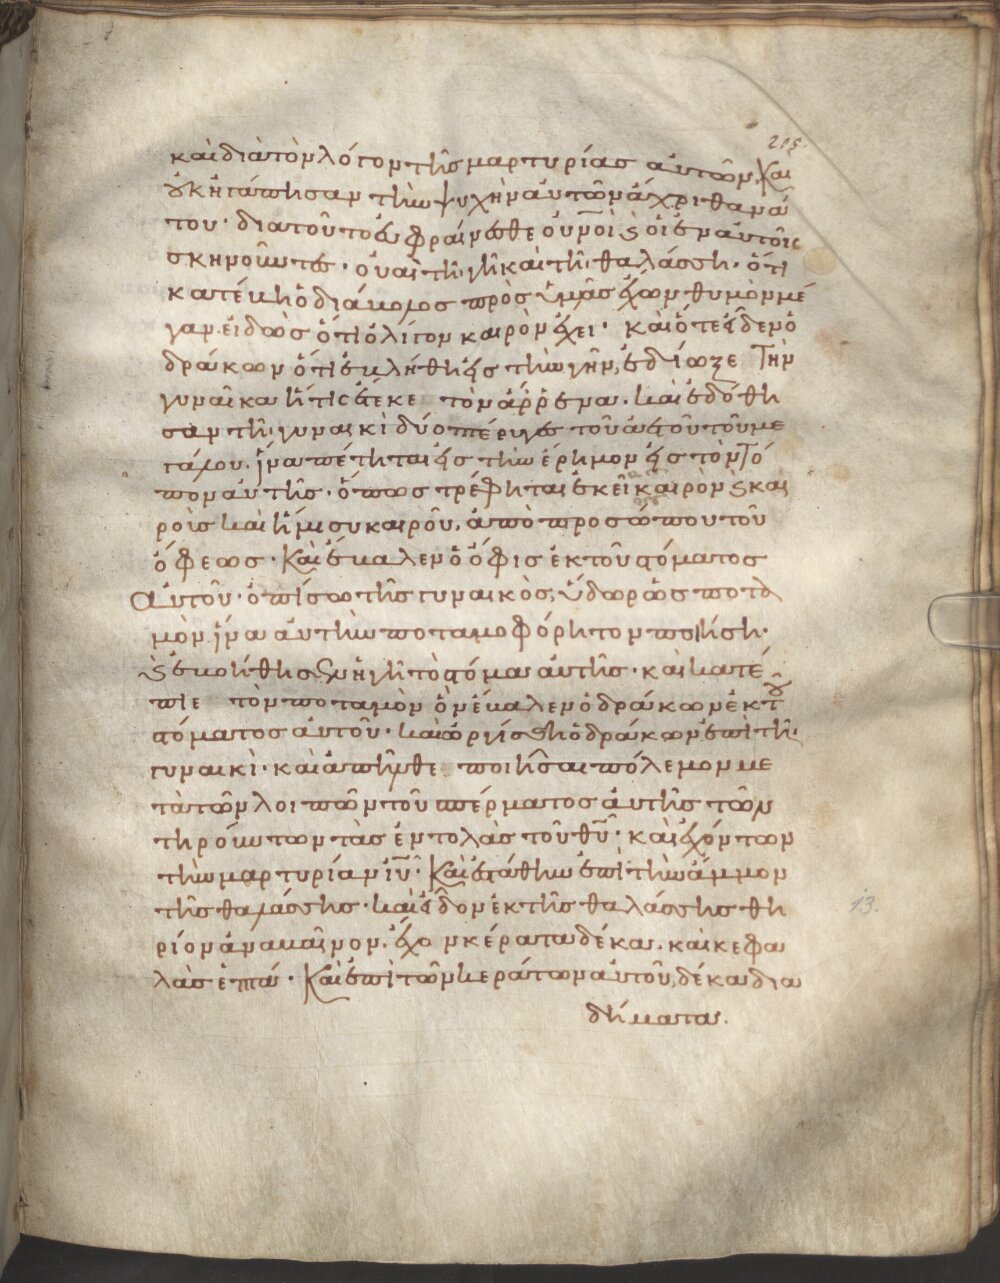 215
καὶ διὰ τὸν λόγον τῆς μαρτυρίας αὐτῶν, καὶ
οὐκ ἠγάπησαν τὴν ψυχὴν αὐτῶν ἄχρι θανά
του· διατοῦτο εὐφραίνεσθε οὐνοὶ ϗ οἱ ἐν αὐτοῖς
σκηνοῦντες· οὐαὶ τῆ γῆ καὶ τῆ θαλάσση· ὅτι
κατέβη ὁ διάβολος πρὸς ὑμᾶς ἔχων θυμὸν μέ
γαν, εἰδὼς ὅτι ὀλίγον καιρὸν ἔχει· καὶ ὅτε εἶδεν ὁ
δράκων ὅτι ἐβλήθη εἰς τὴν γῆν, ἐδίωξε τὴν
γυναῖκα ἥτις ἔτεκε τὸν ἄρρενα. καὶ ἐδόθη
σαν τῆ γυναικὶ δύο πτέρυγες τοῦ ἀετοῦ τοῦ με
γάλου. ἵνα πέτηται εἰς τὴν ἔρημον εἰς τὸν τό
πον αὐτῆς· ὅπως τρέφηται ἐκεῖ καιρὸν ϗ και
ροὺς καὶ ἥμισυ καιροῦ, ἀπὸ προσώπου τοῦ
ὄφεως· Καὶ ἔβαλεν ὁ ὄφις ἐκ τοῦ στόματος
αὐτοῦ· ὀπίσω τῆς γυναικὸς, ὕδωρ ὡς ποτα
μὸν. ἵνα αὐτὴν ποταμοφόρητον ποιήση·
ϗ ἐβοήθησεν ἡ γῆ τὸ στόμα αὐτῆς· καὶ κατέ
πιε τὸν ποταμὸν ὃν ἔβαλεν ὁ δράκων ἐκ τοῦ
στόματος αὐτοῦ· καὶ ὀργίσθη ὁ δράκων ἐπὶ τῆ
γυναικὶ· καὶ ἀπῆλθε ποιῆσαι πόλεμον με
τὰ τῶν λοιπῶν τοῦ σπέρματος αὐτῆς τῶν
τηρούντων τὰς ἐντολὰς τοῦ θυ· καὶ ἐχόντων
τὴν μαρτυρίαν ιυ· Καὶ ἐστάθην ἐπὶ τὴν ἄμμον
τῆς θαλάσσης· καὶ εἶδον ἐκ τῆς θαλάσσης θη
ρίον ἀναβαῖνον. ἔχον κέρατα δέκα. καὶ κεφα
λὰς ἑπτά· Καὶ ἐπὶ τῶν κεράτων αὐτοῦ, δέκα δια
δήματα.
13.